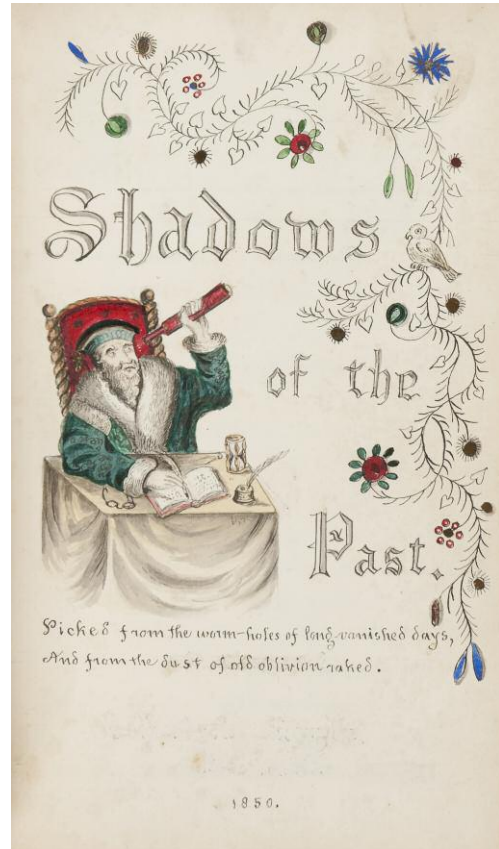 Shadows
of the
Past.
Picked from the worm-holes of long vanished days,
And from the dust of old oblivion raked.
1850.